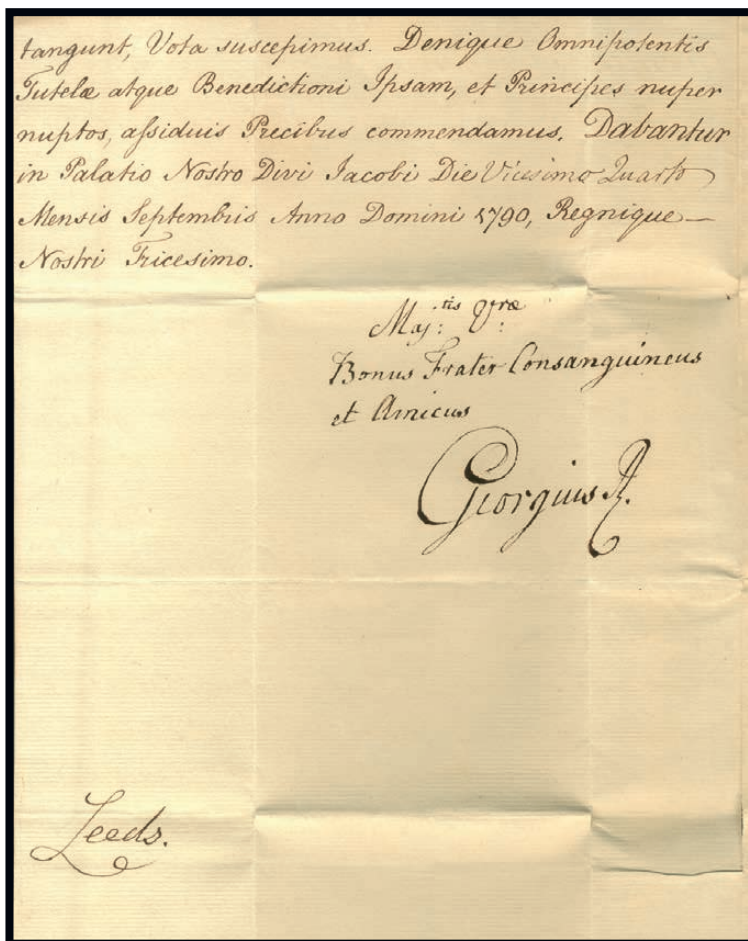 tangunt, Vota suscepimus. Denique Omnipotentis
Tutelæ atque Benedictioni Ipsam, et Principes nuper
nuptos, assiduis Precibus commendamus. Dabantur
in Palatio Nostro Divi Jacobi Die Vicesimo Quarto
Mensis Septembris Anno Domini 1790, Regnique—
Nostri Tricesimo.
Maj:tis Vræ:
Bonus Frater Consanguineus
et Amicus
Georgius R.
Leeds.